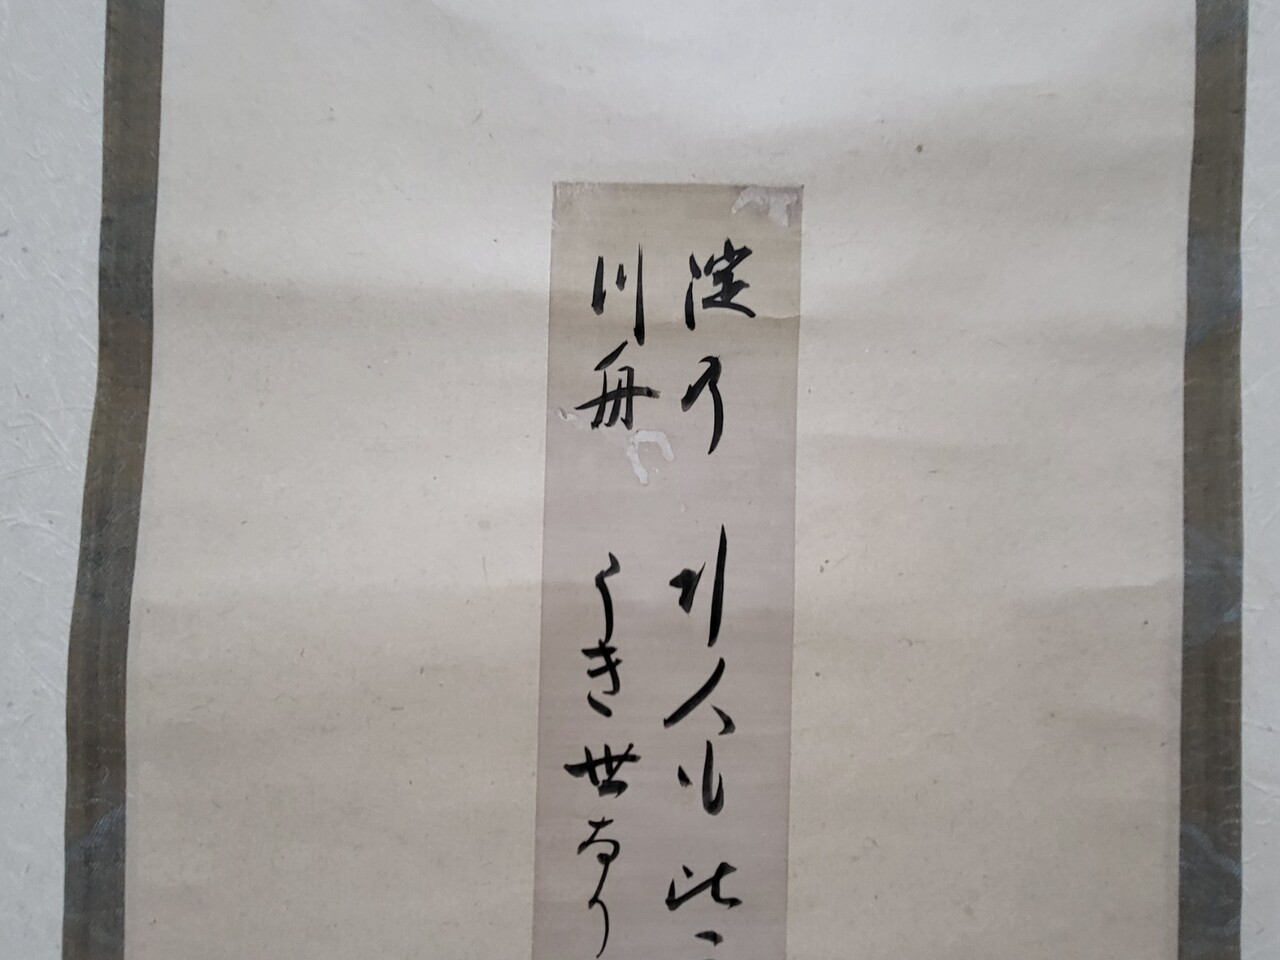 淀乃 引人も此
川舟 うき世なり